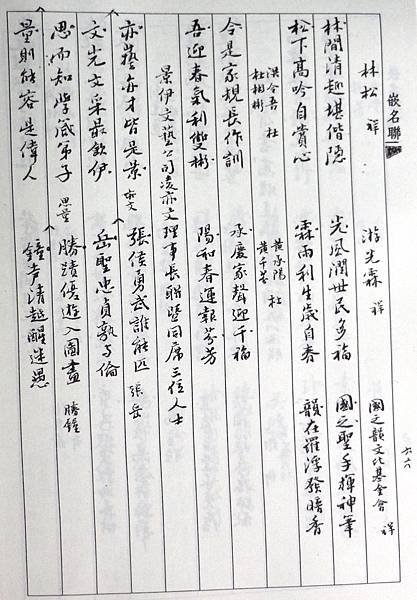 嵌名聯
林松 祥 游光霖 祥 國之韻文化基金會 祥
林間清趣堪偕隱 光風潤世民多福 國之聖手揮神筆
松下高吟自賞心 霖雨利生歲自春 韻在羅浮發暗香
洪今吾 杜 黃承陽 杜
杜相彬 黃千芳
今是家規長作訓 承慶家聲迎千福
吾迎春氣利雙彬 陽和春運報芬芳
景伊文藝公司凌亦文理事長聯暨同席三位人士
亦藝亦才皆是景 亦文 張佳勇武誰能匹 張岳
文光文采最欽伊 岳聖忠貞孰与倫
思而知學箴弟子 思量 勝蹟優遊入圖畫 勝鐘
量則能容是偉人 鐘聲清越醒迷愚
六六